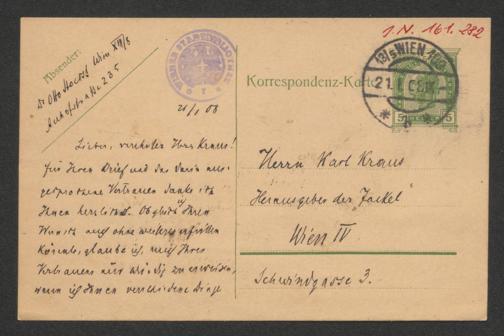 I.N. 161.232
Absender:
Dr Otto Wien XIII/8
235
WIENER STADTBIBLIOTHEK
Korrespondenz-Karte
13/5 WIEN
21.I.08
5 5
21/1 08
Lieber, verehrter Herr Kraus!
Für Ihren Brief und das darin aus-
gesprochene Vertrauen danke ich
Ihnen herzlichst. Ob ich Ihren
Wunsch auch ohne weiteres erfüllen
könnte, glaube ich, mich Ihres
Vertrauens nur würdig zu erweisen,
wenn ich Ihnen verschiedene Dinge
Herrn Karl Kraus
Herausgeber der "Fackel"
Wien IV
Schwindgasse 3.